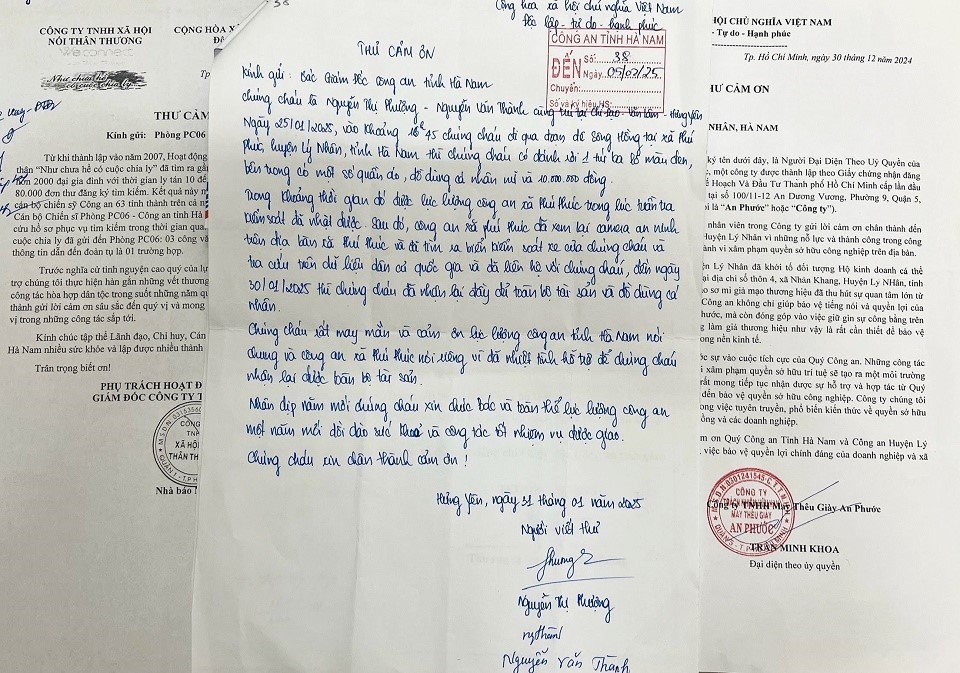 CÔNG TY TNHH XÃ HỘI
NỐI THÂN THƯƠNG
Như chưa hề
có cuộc chia ly
CỘNG HÒA XÃ
THƯ CẢM
Kính gửi: Phòng PC06
Từ khi thành lập vào năm 2007, Hoạt động
thân “Như chưa hề có cuộc chia ly” đã tìm ra gần
hơn 2000 đại gia đình với thời gian ly tán 10 đế
80.000 đơn thư đăng ký tìm kiếm. Kết quả này n
cán bộ chiến sỹ Công an 63 tỉnh thành trên cả n
Cán bộ Chiến sĩ Phòng PC06 - Công an tỉnh Hà
cứu hồ sơ phục vụ tìm kiếm trong thời gian qua.
cuộc chia ly đã gửi đến Phòng PC06: 03 công vă
thông tin dẫn đến đoàn tụ là 01 trường hợp.
Trước nghĩa cử tình nguyện cao quý của lự
trợ chúng tôi thực hiện hàn gắn những vết thương
công tác hòa hợp dân tộc trong suốt những năm qu
thành gửi lời cảm ơn sâu sắc đến quý vị và mong
vị trong những công tác sắp tới.
Kính chúc tập thể Lãnh đạo, Chỉ huy, Cán
Hà Nam nhiều sức khỏe và lập được nhiều thành
Trân trọng biết ơn!
PHỤ TRÁCH HOẠT Đ
GIÁM ĐỐC CÔNG TY T
CÔNG
TN
XÃ HỘI
THÂN TH
Nhà báo
38
Cộng hòa xã hội chủ nghĩa Việt Nam
Độc lập - tự do - hạnh phúc
CÔNG AN TỈNH HÀ NAM
ĐẾN
Số: 38
Ngày 05/02/25
Chuyển:
Số và ký hiệu HS:
THƯ CẢM ƠN
Kính gửi: Bác Giám đốc công an tỉnh Hà Nam
Chúng cháu là Nguyễn Thị Phượng - Nguyễn Văn Thành cùng trú tại Chỉ Đạo - Văn Lâm - Hưng Yên
Ngày 25/01/2025, vào khoảng 16h45 chúng cháu đi qua đoạn đê sông Hồng tại xã Phú
Phúc, huyện Lý Nhân, tỉnh Hà Nam thì chúng cháu có đánh rơi 1 túi ba lô màu đen,
bên trong có một số quần áo, đồ dùng cá nhân và 10.000.000 đồng.
Trong khoảng thời gian đó được lực lượng công an xã Phú Phúc trong lúc tuần tra
kiểm soát đã nhặt được. Sau đó, công an xã Phú Phúc đã xem lại camera an ninh
trên địa bàn xã Phú Phúc và đã tìm ra biển kiểm soát xe của chúng cháu và
tra cứu trên dữ liệu dân cư quốc gia và đã liên hệ với chúng cháu, đến ngày
30/01/2025 thì chúng cháu đã nhận lại đầy đủ toàn bộ tài sản và đồ dùng cá
nhân.
Chúng cháu rất may mắn và cảm ơn lực lượng công an tỉnh Hà Nam nói
chung và công an xã Phú Phúc nói riêng vì đã nhiệt tình hỗ trợ để chúng cháu
nhận lại được toàn bộ tài sản.
Nhân dịp năm mới chúng cháu xin chúc Bác và toàn thể lực lượng công an
một năm mới dồi dào sức khoẻ và công tác tốt nhiệm vụ được giao.
Chúng cháu xin chân thành cảm ơn!
Hưng Yên, ngày 31 tháng 01 năm 2025
Người viết thư
Phượng
Nguyễn Thị Phượng
Nguyễn Văn Thành
HỘI CHỦ NGHĨA VIỆT NAM
- Tự do - Hạnh phúc
Tp. Hồ Chí Minh, ngày 30 tháng 12 năm 2024
HƯ CẢM ƠN
NHÂN, HÀ NAM
ký tên dưới đây, là Người Đại Diện Theo Uỷ Quyền của
một công ty được thành lập theo Giấy chứng nhận đăng
ế Hoạch Và Đầu Tư Thành phố Hồ Chí Minh cấp lần đầu
tại số 100/11-12 An Dương Vương, Phường 9, Quận 5,
ọi là “An Phước” hoặc “Công ty”).
nhân viên trong Công ty gửi lời cảm ơn chân thành đến
Huyện Lý Nhân vì những nỗ lực và thành công trong công
nh vi xâm phạm quyền sở hữu công nghiệp trên địa bàn.
yện Lý Nhân đã khởi tố đối tượng Hộ kinh doanh cá thể
tại địa chỉ số thôn 4, xã Nhân Khang, Huyện Lý Nhân, tỉnh
áo sơ mi giả mạo thương hiệu đã thu hút sự quan tâm lớn từ
Công an không chỉ giúp bảo vệ tiếng nói và quyền lợi của
hước, mà còn đóng góp vào việc giữ gìn sự công bằng trên
g làm giả thương hiệu như vậy là rất cần thiết để bảo vệ
ong nền kinh tế.
ớc sự vào cuộc tích cực của Quý Công an. Những công tác
i xâm phạm quyền sở hữu trí tuệ sẽ tạo ra một môi trường
rất mong tiếp tục nhận được sự hỗ trợ và hợp tác từ Quý
đến bảo vệ quyền sở hữu công nghiệp. Công ty chúng tôi
ong việc tuyên truyền, phổ biến kiến thức về quyền sở hữu
ồng và các doanh nghiệp.
ảm ơn Quý Công an Tỉnh Hà Nam và Công an Huyện Lý
việc bảo vệ quyền lợi chính đáng của doanh nghiệp và xã
Công ty TNHH May Thêu Giày An Phước
CÔNG TY
MAY THÊU GIÀY
AN PHƯỚC
TRẦN MINH KHOA
Đại diện theo ủy quyền